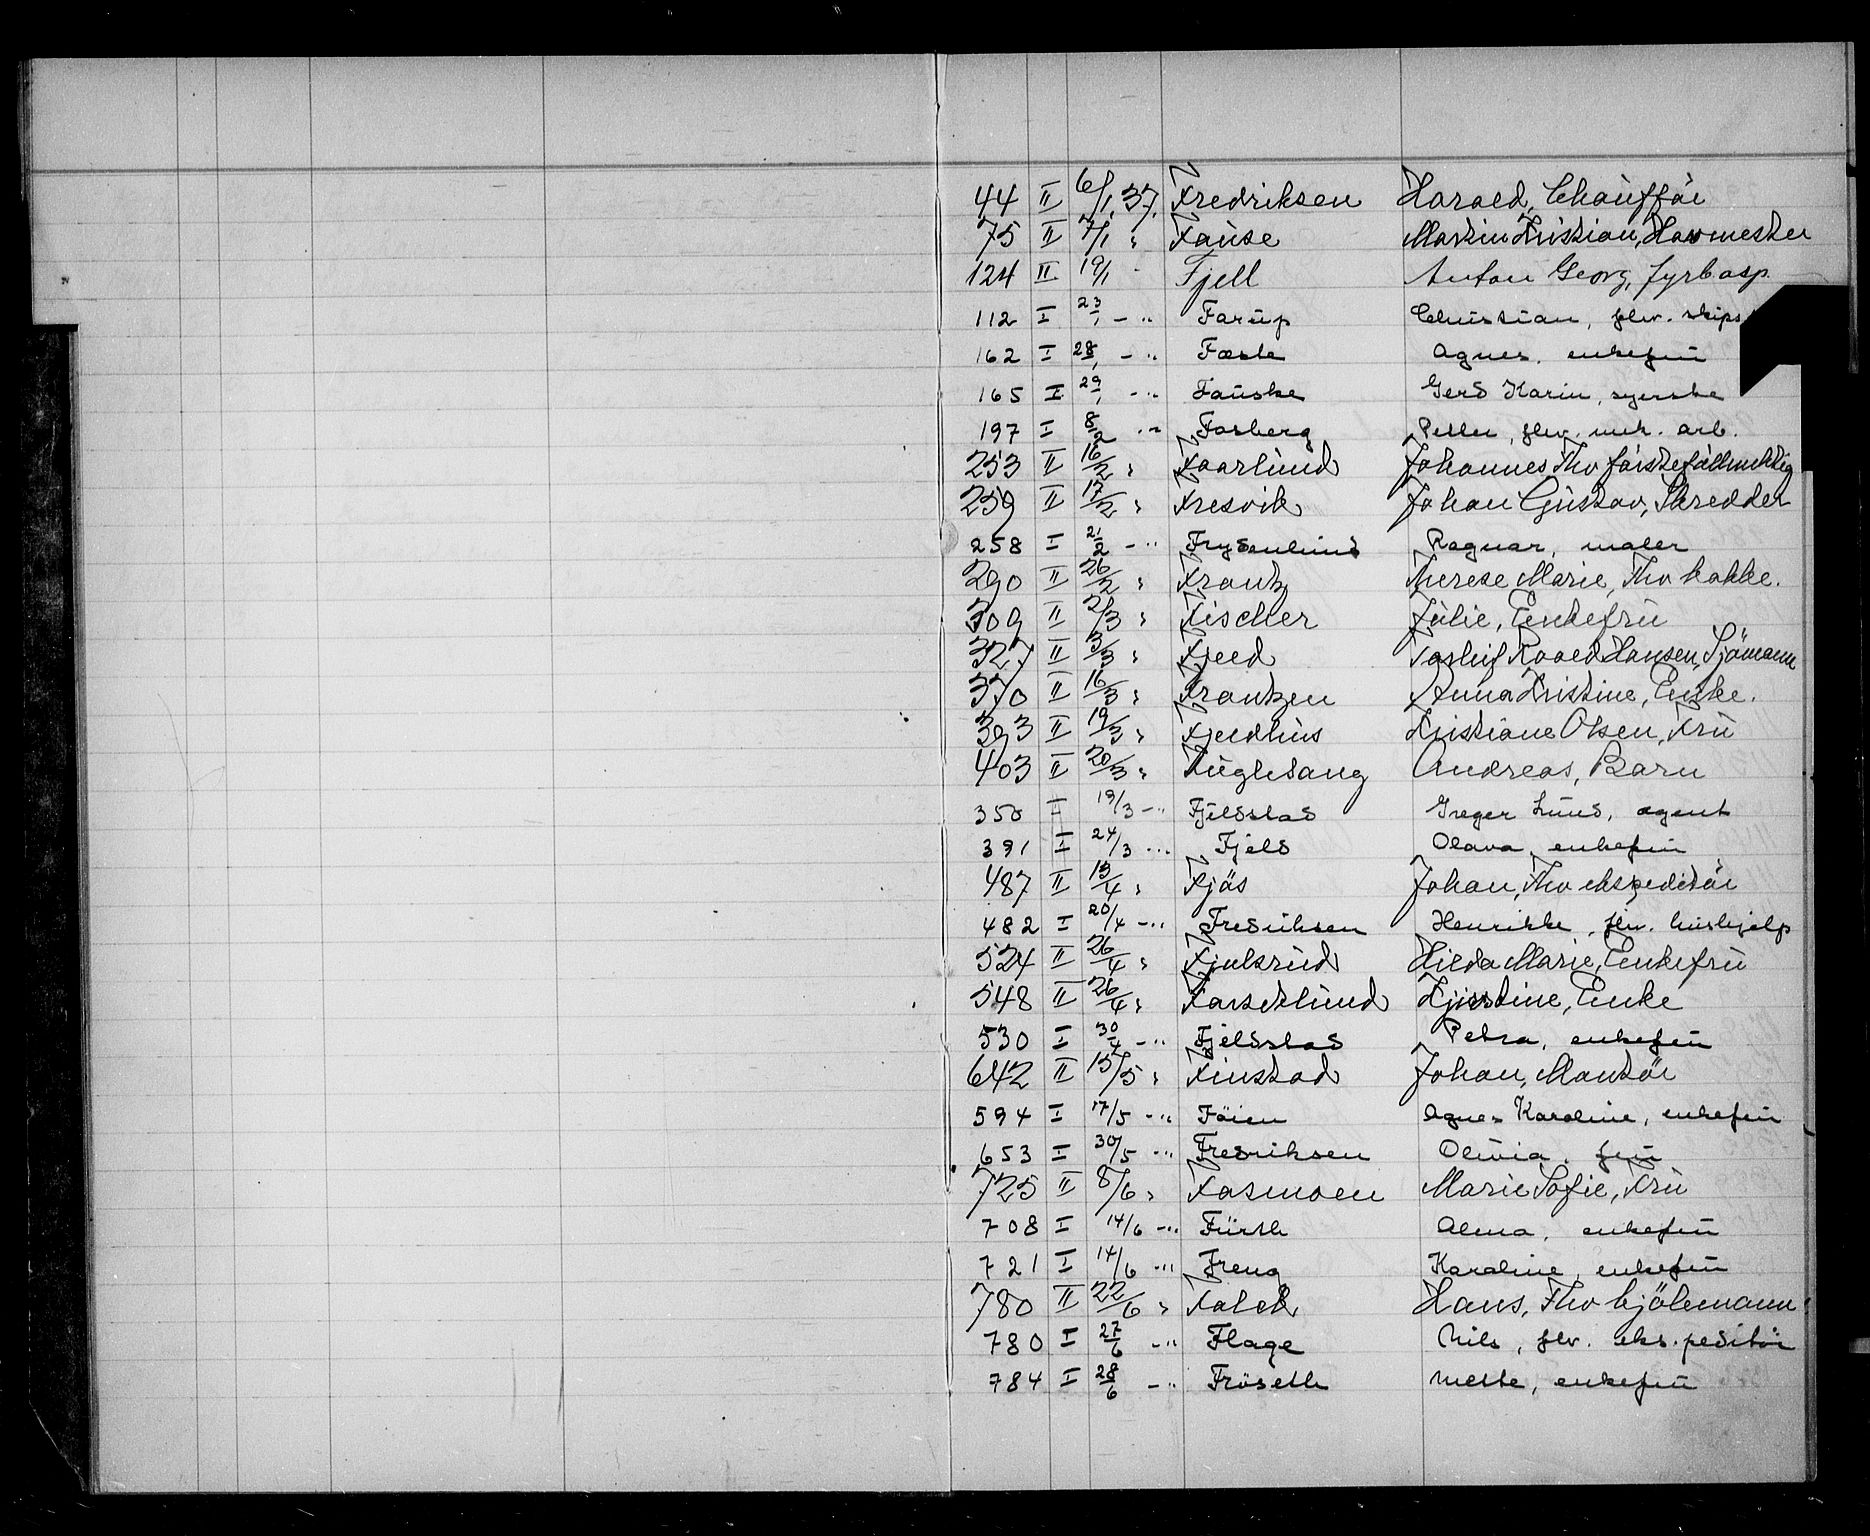 44 II 6/1 37. Fredriksen Harald, Chauffør
75 II 7/1 " Fause Martin Kristian, Havnmester
124 II 19/1 - Fjell Anton Georg, fyrbøsp.
112 I 23/1 - " Farup Christian, flv. skips
162 I 28/1 - " Fæste Agnes, enkefrü
165 I 29/1 - " Fauske Gerd Karin, syerske
197 I 8/2 - " Fosberg Petter, flv. mek. arb.
253 II 16/2 " Faarlund Johannes Fhv førstefullmektig
259 II 17/2 " Fresvik Johan Gustav, Skredder
258 I 21/2 - " Frydenlund Ragnar, maler
290 II 26/2 " Frantz Therese Marie, Fhv kokke.
309 II 2/3 " Fischer Julie, Enkefrü
327 II 3/3 " Fjeld Roald Hansen, Sjömann
370 II 16/3 " Frantzen Anna Kristine, Enke.
393 II 19/3 " Fjeldhus Kristiane Olsen, Frü
403 II 20/3 " Fuglesang Andreas, Barn
350 I 19/3 - " Fjeldstad Greger Lund, agent
391 I 24/3 - " Fjeld Olava, enkefrü
487 II 15/4 " Fjøs Johan, Fhv ekspeditör
482 I 20/4 - " Fredriksen Henrikke, flv. hushjelp
524 II 26/4 " Fjulsrud Hilda Marie, Enkefrü
548 II 26/4 " Enke
530 I 30/4 - " Fjeldstad Petra, enkefrü
642 II 15/5 " Finstad Johan, Montör
594 I 17/5 - " Föien Agnes Karoline, enkefrü
653 I 30/5 - " Fredriksen Olivia, frü
725 II 8/6 " Fasmoen Marie Sofie, Frü
708 I 14/6 - " Fürst Alma, enkefrü
721 I 14/6 - " Freng Karoline, enkefrü
780 II 22/6 " Falck Hans, Fhv kjölemann
780 I 27/6 - " Flage Nils, flv. eks.peditör
784 I 28/6 - " Fröseth Mette, enkefrü